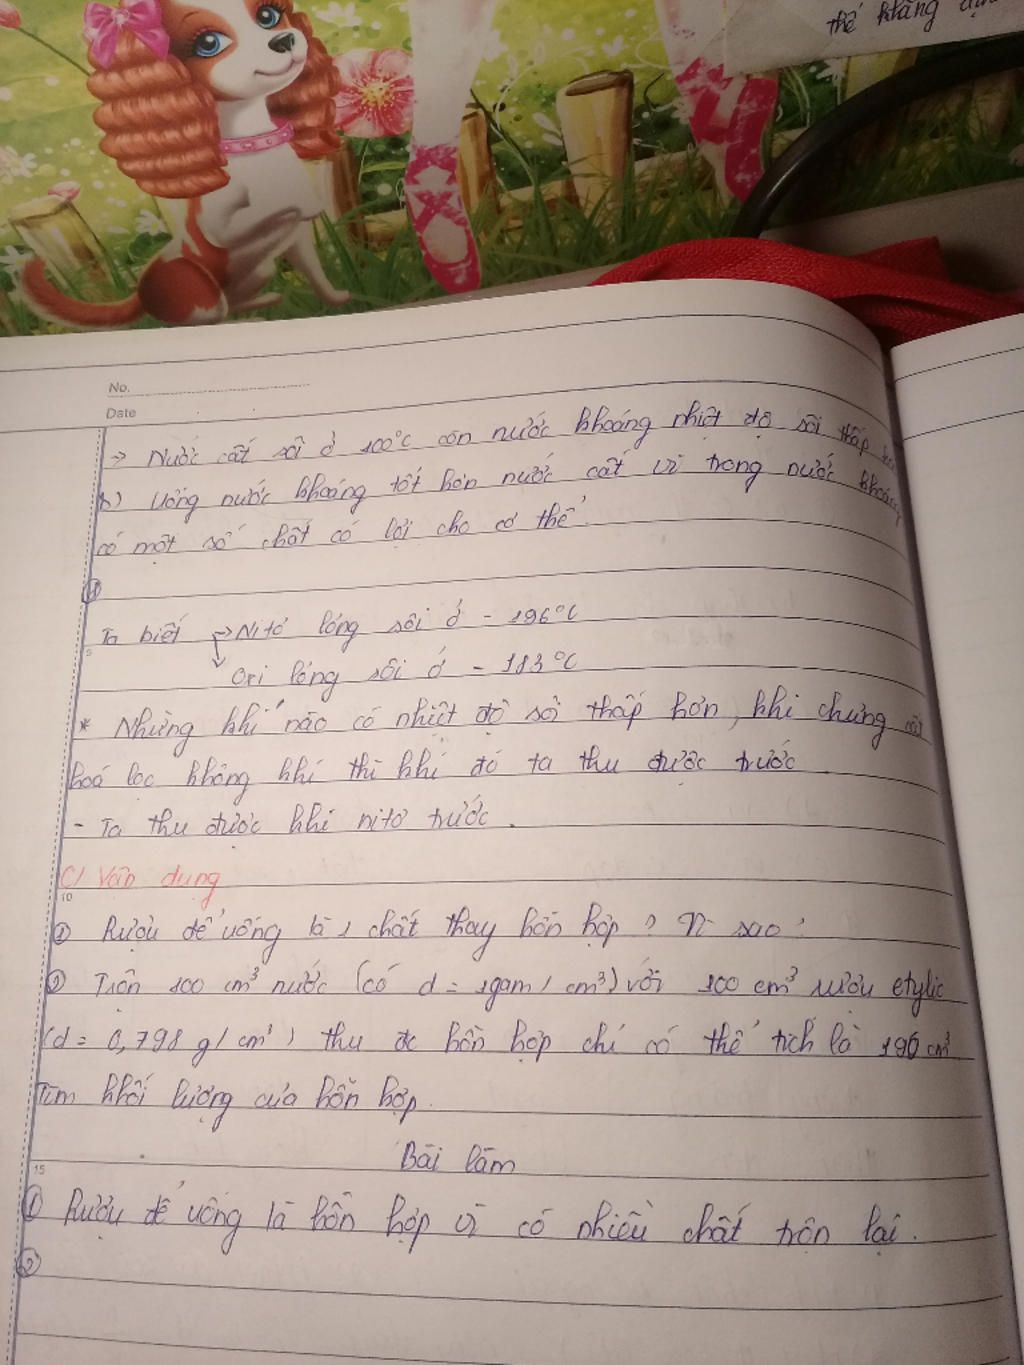 thể khẳng định
No.
Date
→ Nước cất sôi ở 100°C còn nước khoáng nhiệt độ sôi thấp hơn
b) Uống nước khoáng tốt hơn nước cất vì trong nước khoáng
có một số chất có lợi cho cơ thể.
4
Ta biết → Nitơ lỏng sôi ở - 196°C
5
Oxi lỏng sôi ở - 183°C
* Những khí nào có nhiệt độ sôi thấp hơn, khi chưng cất
hoá lọc không khí thì khí đó ta thu được trước.
- Ta thu được khí nitơ trước.
C/ Vận dụng
10
① Rượu để uống là 1 chất thay hỗn hợp? Vì sao?
② Trộn 100 cm³ nước (có d = 1gam/cm³) với 100 cm³ rượu etylic
(d = 0,798 g/cm³) thu đc hỗn hợp chỉ có thể tích là 196 cm³
Tìm khối lượng của hỗn hợp.
Bài làm
15
① Rượu để uống là hỗn hợp vì có nhiều chất trộn lại.
②